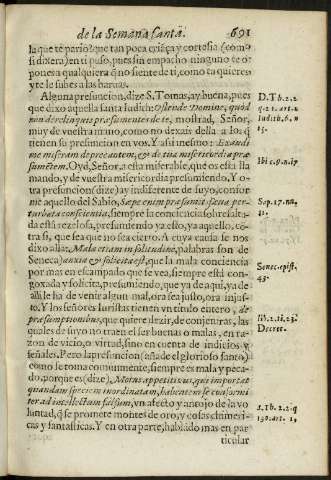 de la Semana santa. 691
la que te pario? que tan poca criãça y cortesia (como
si dixera) en ti puso, pues sin empacho ninguno te o-
pones a qualquiera q̃ no siente de ti, como tu quieres
y te le subes a las barvas.
Alguna presuncion, dize S. Tomas, ay buena, pues
que dixo aquella santa Iudich: Ostende Domine, quoniã
non derelinquis præsumentes de te, mostrad, Señor,
muy de vuestra mano, como no dexais de la a los q̃
tienen su presuncion en vos. Y assi mesmo: Exaudi
me miseram deprecantem, & de tua misericordia præ
sumētem. Oyd, Señor, a esta miserable, que os esta lla
mando, y de vuestra misericordia presumiendo. Y o-
tra presuncion (dize) ay indiferente de suyo, confor
me aquello del Sabio, Sæpe enim præsumit sæva per-
turbata conscientia, siempre la conciencia sobresalta-
da està rezelosa, presumiendo ya esto, ya aquello, cõ-
tra si, que sea que no sea cierto. A cuya causa se nos
dixo alia: Mala etiam in solitudine, palabras son de
Seneca anxia & sollicita est, que la mala conciencia
por mas en escampado que se vea, siempre està con-
goxada y solicita, presumiendo, que ya de aqui, ya de
alli le ha de venir algun mal, ora sea justo, ora injus-
to. Y los señores Iuristas tienen vn titulo entero, de
præsumptionibus, que quiere dezir, de conjeturas, las
quales de suyo no traen el ser buenas o malas, en ra-
zon de vicio, o virtud, sino en cuenta de indicios y
señales. Pero la presuncion (añade el glorioso santo)
como se toma comunmente, siempre es mala y peca-
do, porque es (dize), Motus appetitivus, qui importat
quandam spem inordinatam, habentem se conformi-
ter ad intellectum falsum, vn afecto y antojo de la vo
luntad, q̃ se promete montes de oro, y cosas chimeri-
cas y fantasticas. Y en otra parte, hablado mas en par
ticular
D. Th. 2. 2
q. 21. art. 1
Iudith. 6. n
15.
Ibi c. 9. n. 17
Sap. 17. nu.
11.
Senec. epist.
43.
lib. 2. ti. 23.
Decret.
S. Th. 2. 2. q
130. art. 1,